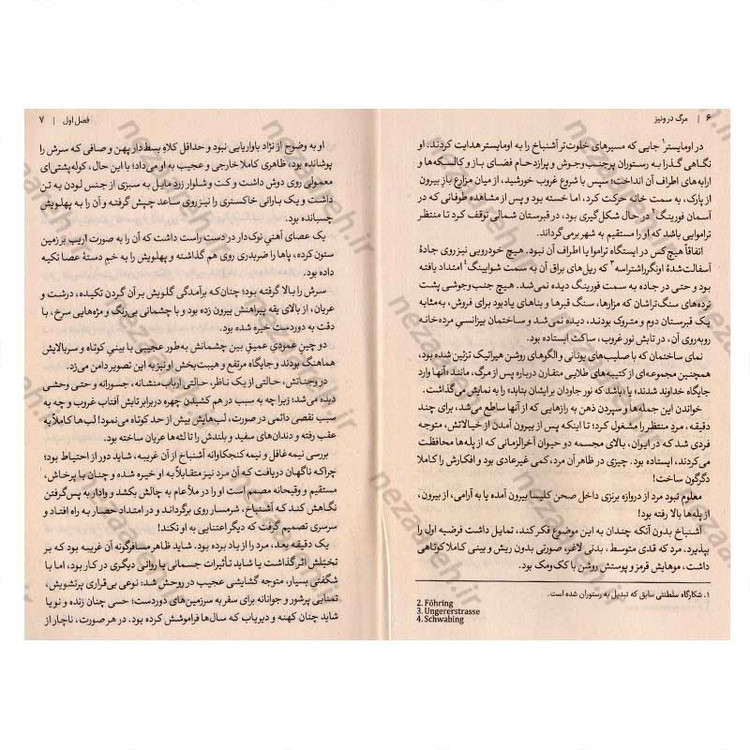 ۶ | مرگ در ونیز
در اومایستر۱ جایی که مسیرهای خلوت‌تر آشنباخ را به اومایستر هدایت کردند، او
نگاهی گذرا به رستوران پرجنب‌وجوش و پرازدحام فضای باز و کالسکه‌ها و
ارابه‌های اطراف آن انداخت؛ سپس با شروع غروب خورشید، از میان مزارع بازِ بیرون
از پارک، به سمت خانه حرکت کرد، اما خسته بود و پس از مشاهده طوفانی که در
آسمان فورینگ۲ در حال شکل‌گیری بود، در قبرستان شمالی توقف کرد تا منتظر
تراموایی باشد که او را مستقیم به شهر برمی‌گرداند.
اتفاقاً هیچ‌کس در ایستگاه تراموا یا اطراف آن نبود. هیچ خودرویی نیز روی جادهٔ
آسفالت‌شدهٔ اونگرراشتراسه۳ که ریل‌های براق آن به سمت شوابینگ۴ امتداد یافته
بود و حتی در جاده به سمت فورینگ دیده نمی‌شد. هیچ جنب‌وجوشی پشت
نرده‌های سنگ‌تراشان که مزارها، سنگ قبرها و بناهای یادبود برای فروش، به‌مثابه
یک قبرستان دوم و متروک بودند، دیده نمی‌شد و ساختمان بیزانسیِ مرده‌خانه
روبه‌روی آن، در تابش نور غروب، ساکت ایستاده بود.
نمای ساختمان که با صلیب‌های یونانی و الگوهای روشن هیراتیک تزئین شده بود،
همچنین مجموعه‌ای از کتیبه‌های طلایی متقارن درباره پس از مرگ، مانند: «آنها وارد
جایگاه خداوند شدند» یا «باشد که نور جاودان بر ایشان بتابد» را به نمایش می‌گذاشت.
خواندن این جمله‌ها و سپردن ذهن به رازهایی که از آنها ساطع می‌شد، برای چند
دقیقه، مردِ منتظر را مشغول کرد؛ تا اینکه پس از بیرون آمدن از خیالاتش، متوجه
فردی شد که در ایوان، بالای مجسمه دو حیوان آخرالزمانی که از پله‌ها محافظت
می‌کردند، ایستاده بود. چیزی در ظاهر آن مرد، کمی غیرعادی بود و افکارش را کاملا
دگرگون ساخت!
معلوم نبود مرد از دروازه برنزی داخل صحن کلیسا بیرون آمده یا به آرامی، از بیرون،
از پله‌ها بالا رفته بود.
آشنباخ بدون آنکه چندان به این موضوع فکر کند، تمایل داشت فرضیه اول را
بپذیرد. مرد که قدی متوسط، بدنی لاغر، صورتی بدون ریش و بینی کاملا کوتاهی
داشت، موهایش قرمز و پوستش روشن با کک‌ومک بود.
۱. شکارگاه سلطنتی سابق که تبدیل به رستوران شده است.
2. Föhring
3. Ungererstrasse
4. Schwabing
فصل اول | ۷
او به وضوح از نژاد باواریایی نبود و حداقل کلاهِ بسط‌دار پهن و صافی که سرش را
پوشانده بود، ظاهری کاملا خارجی و عجیب به او می‌داد؛ با این حال، کوله‌پشتی‌ای
معمولی روی دوش داشت و کت و شلوار زرد مایل به سبزی از جنس لودن به تن
داشت و یک بارانی خاکستری را نیز روی ساعد چپش گرفته و آن را به پهلویش
چسبانده بود.
یک عصای آهنیِ نوک‌دار در دست راست داشت که آن را به صورت اریب بر زمین
ستون کرده، پاها را ضربدری روی هم گذاشته و پهلویش را به خم دستهٔ عصا تکیه
داده بود.
سرش را بالا گرفته بود؛ چنان‌که برآمدگی گلویش بر آن گردن تکیده، درشت و
عریان، از بالای یقه پیراهنش بیرون زده بود و با چشمانی بی‌رنگ و مژه‌هایی سرخ، با
دقت به دوردست خیره شده بود.
دو چین عمودیِ عمیق بین چشمانش به‌طور عجیبی با بینیِ کوتاه و سربالایش
هماهنگ بودند و جایگاه مرتفع و هیبت‌بخش او نیز به این تصویر دامن می‌زد.
در وجناتش، حالتی از یک ناظر، حالتی ارباب‌منشانه، جسورانه و حتی وحشی
دیده می‌شد؛ زیرا چه به سبب در هم کشیدن چهره در برابر تابش آفتاب غروب و چه به
سبب نقصی دائمی در صورت، لب‌هایش بیش از حد کوتاه می‌نمود! لب‌ها کاملاً به
عقب رفته و دندان‌های سفید و بلندش را تا لثه‌ها عریان ساخته بود.
بررسی نیمه‌غافل و نیمه‌کنجکاوانه آشنباخ از آن غریبه، شاید دور از احتیاط بود؛
چراکه ناگهان دریافت که آن مرد نیز متقابلاً به او خیره شده و چنان با پرخاش،
مستقیم و وقیحانه مصمم است او را در ملأ عام به چالش بکشد و وادار به پس‌گرفتن
نگاهش کند که آشنباخ، شرمسار روی برگرداند و در امتداد حصار به راه افتاد و
سرسری تصمیم گرفت که دیگر اعتنایی به او نکند!
یک دقیقه بعد، مرد را از یاد برده بود. شاید ظاهر مسافرگونه آن غریبه بود که بر
تخیلش اثر گذاشت یا شاید تأثیرات جسمانی یا روانی دیگری در کار بود، اما با
شگفتیِ بسیار، متوجه گشایشی عجیب در روحش شد؛ نوعی بی‌قراری پرتشویش،
تمنایی پرشور و جوانانه برای سفر به سرزمین‌های دوردست؛ حسی چنان زنده و نو یا
شاید چنان کهنه و دیریاب که سال‌ها فراموشش کرده بود. در هر صورت، ناچار از
nezaafeh.ir